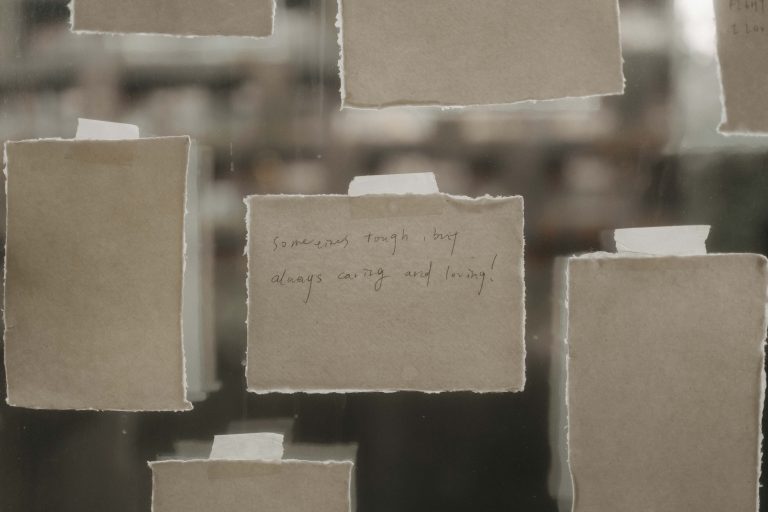 Sometimes tough, but
always caring and loving!